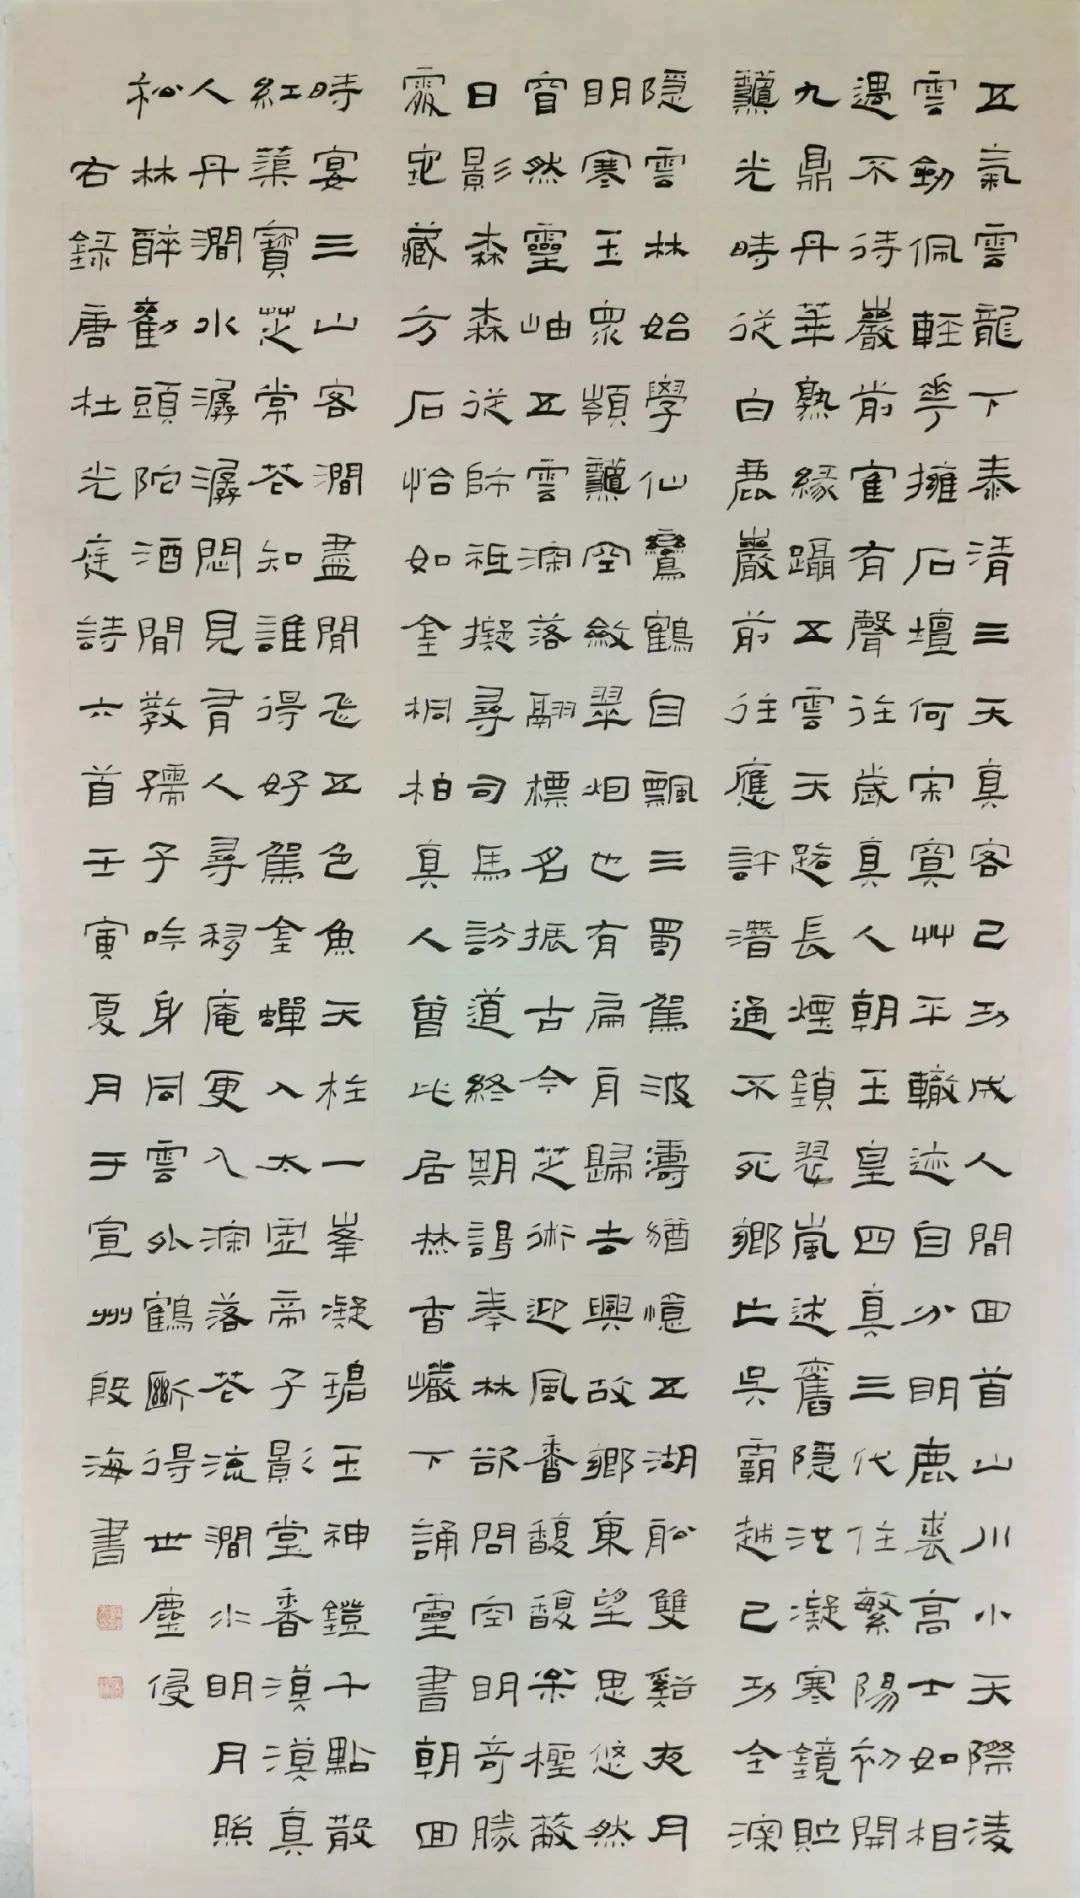 五氣雲龍下泰清三天真客已功成人間回首山川小天際淩
雲劍佩輕花擁石壇何寂寞艸平轍迹自分明鹿裘高士如相
遇不待巖前寉有聲往歲真人朝玉皇四真三代住繁陽初開
九鼎丹華熟緣躡五雲天路長煙鎖翠嵐迷舊隱池凝寒鏡貯
龝光時從白鹿巖前往應許潛通不死鄉亡吳霸越已功全深
隱雲林始學仙鸞鶴自飄三蜀駕波濤猶憶五湖舩雙谿夜月
明寒玉眾嶺龝空斂翠烟也有扁舟歸去興故鄉東望思悠然
窅然靈岫五雲深落翮標名振古今芝術迎風香馥馥松檉蔽
日影森森從師祇擬尋司馬訪道終期謁奉林欲問空明奇勝
處藏方石恰如金桐柏真人曾此居焚香巖下誦靈書朝回
時宴三山客澗盡閒飛五色魚天柱一峯凝碧玉神鐙千點散
紅蕖寶芝常花知誰得好駕金蟬入太虛帝子影堂香漠漠真
人丹澗水潺潺悶見有人尋移庵更入深落花流澗水明月照
松林醉勸頭陀酒閒教孺子吟身同雲外鶴斷得世塵侵
右錄唐杜光庭詩六首壬寅夏月于宣州段海書